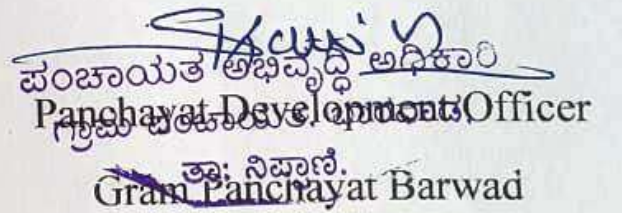 ಪಂಚಾಯತ ಅಭಿವೃದ್ಧಿ ಅಧಿಕಾರಿ
Panchayat Development Officer
ಗ್ರಾಮ ಪಂಚಾಯತ
ತಾ: ನಿಪ್ಪಾಣಿ.
Gram Panchayat Barwad